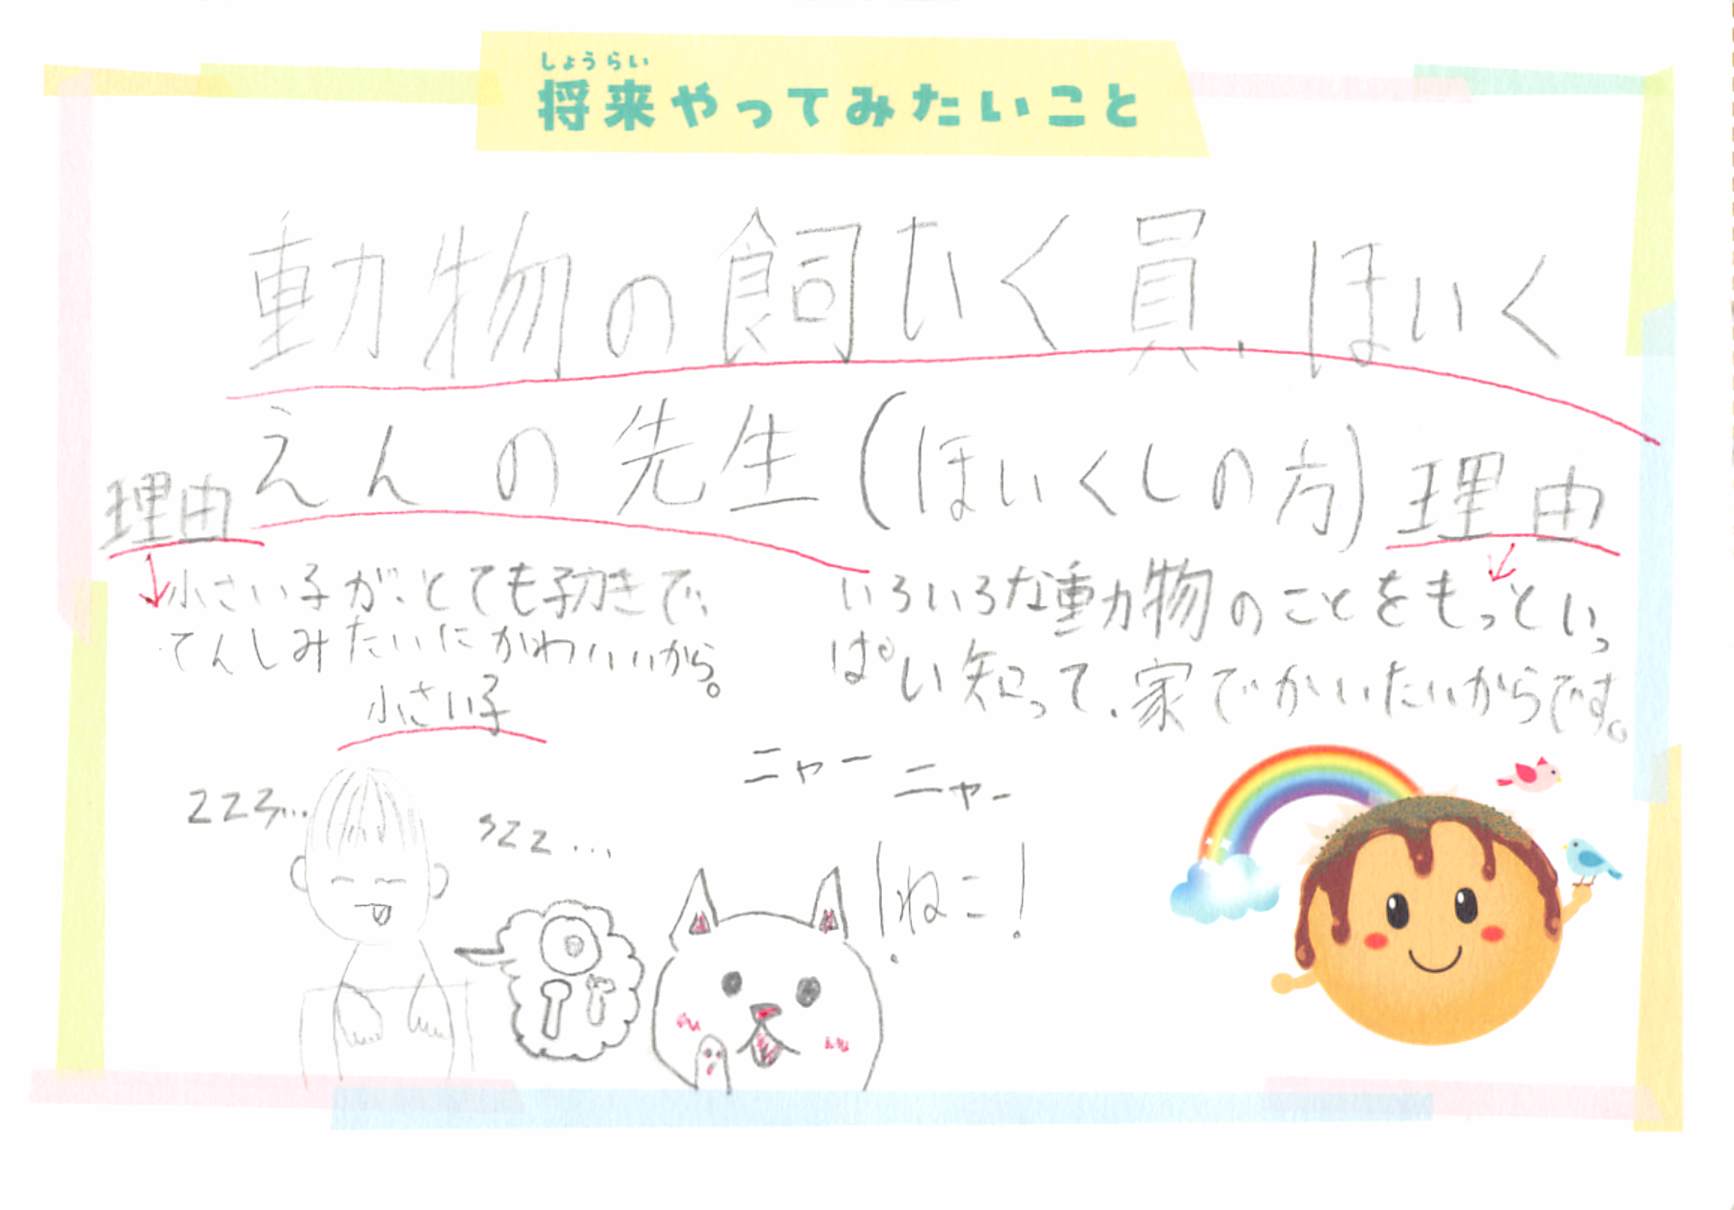 しょうらい
将来やってみたいこと
動物の飼いく員、ほいく
えんの先生(ほいくしの方)
理由
小さい子が、とても好きで、
てんしみたいにかわいいから。
小さい子
理由
いろいろな動物のことをもっといっ
ぱい知って、家でかいたいからです。
zzz...
zzz...
ニャー
ニャー
!ねこ!